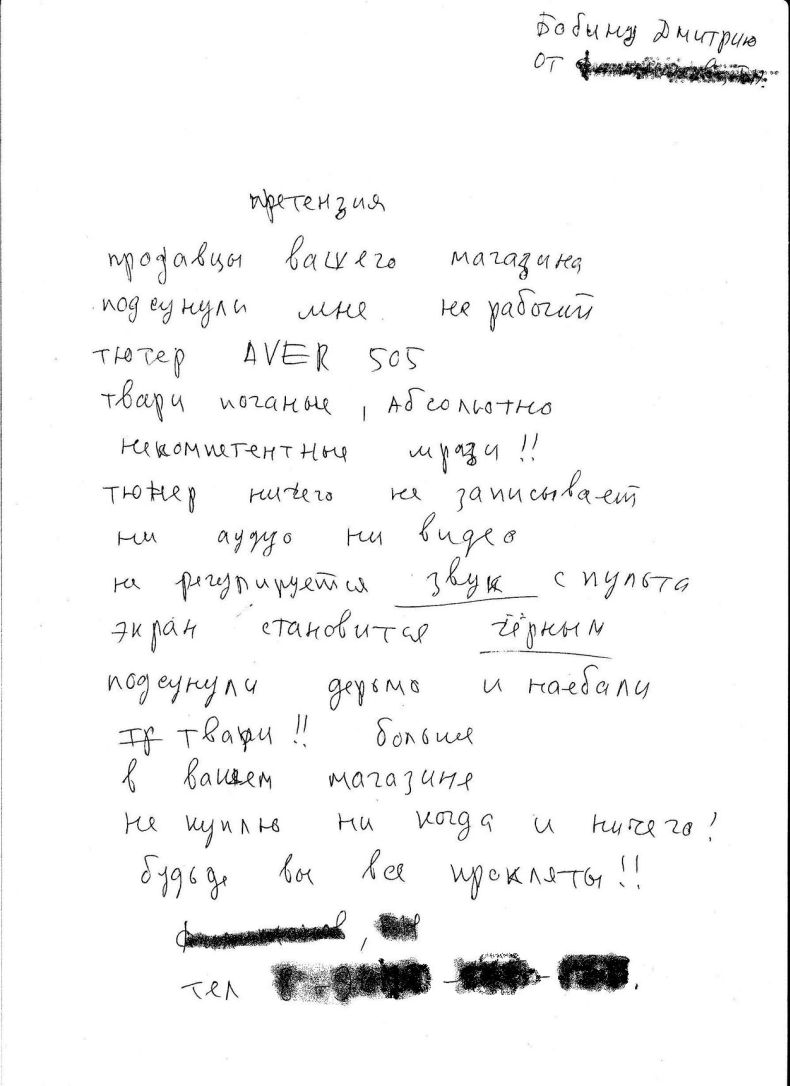 Бобину Дмитрию
от
претензия
продавцы вашего магазина
подсунули мне не рабочий
тютер AVER 505
твари поганые, абсольютно
некомпетентные мрази!!
тюнер ничего не записывает
ни аудуо ни видео
не регулируется звук с пульта
экран становится чёрным
подсунули дерьмо и наебали
твари!! больше
в вашем магазине
не куплю ни когда и ничего!
будьде вы все прокляты!!
тел